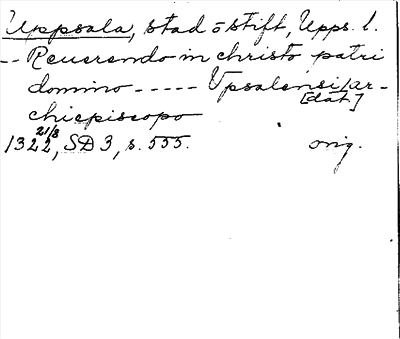 Uppsala, stad o stift, Upps. l.
-- Reuerendo in christo patri
domino ----- Vpsalensi/ar-
[dat.]
chiepiscopo
21/3
1322, SD 3, s. 555. orig.